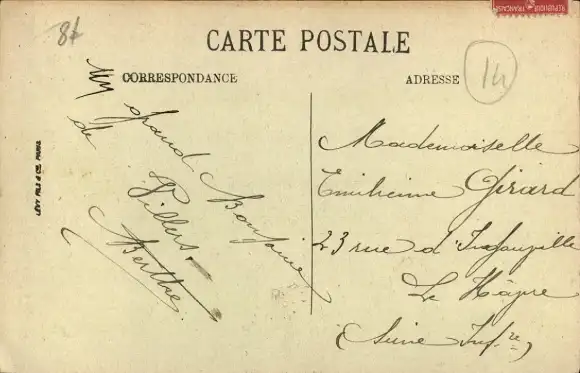 RÉPUBLIQUE FRANÇAISE
84
CARTE POSTALE
CORRESPONDANCE
ADRESSE
14
LÉVY FILS & CIE PARIS
Un grand Bonjour
de Villers.
Berthe
Mademoiselle
Girard
23 rue d'Ingouville
Le Hâvre
(Seine Infre)